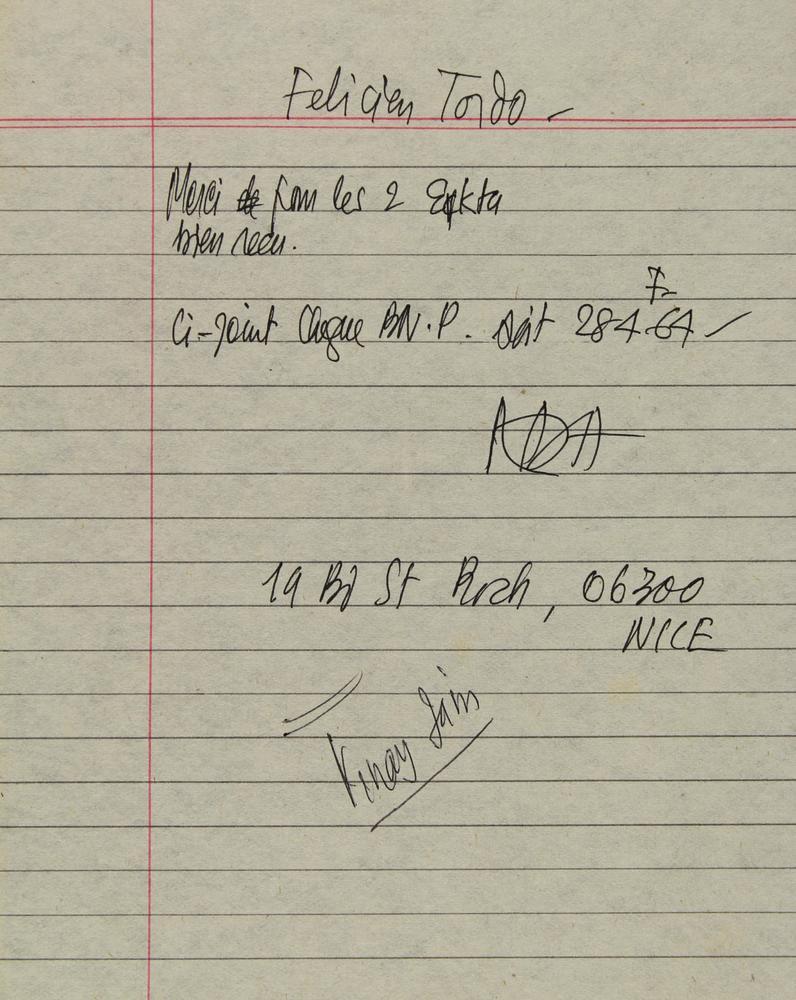 Felicien Tordo -
Merci pour les 2 Ekta
bien reçu.
F
Ci-joint Chèque B.N.P. soit 284.64
19 Bd St Roch, 06300
NICE
Vinay Jain